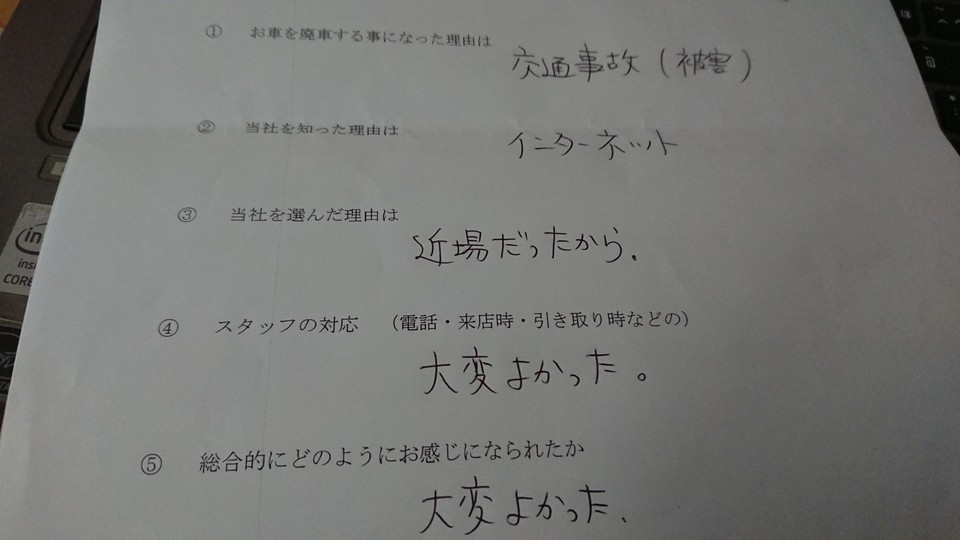 ① お車を廃車する事になった理由は
交通事故(被害)
② 当社を知った理由は
インターネット
③ 当社を選んだ理由は
近場だったから.
④ スタッフの対応 (電話・来店時・引き取り時などの)
大変よかった。
⑤ 総合的にどのようにお感じになられたか
大変よかった、
CORE